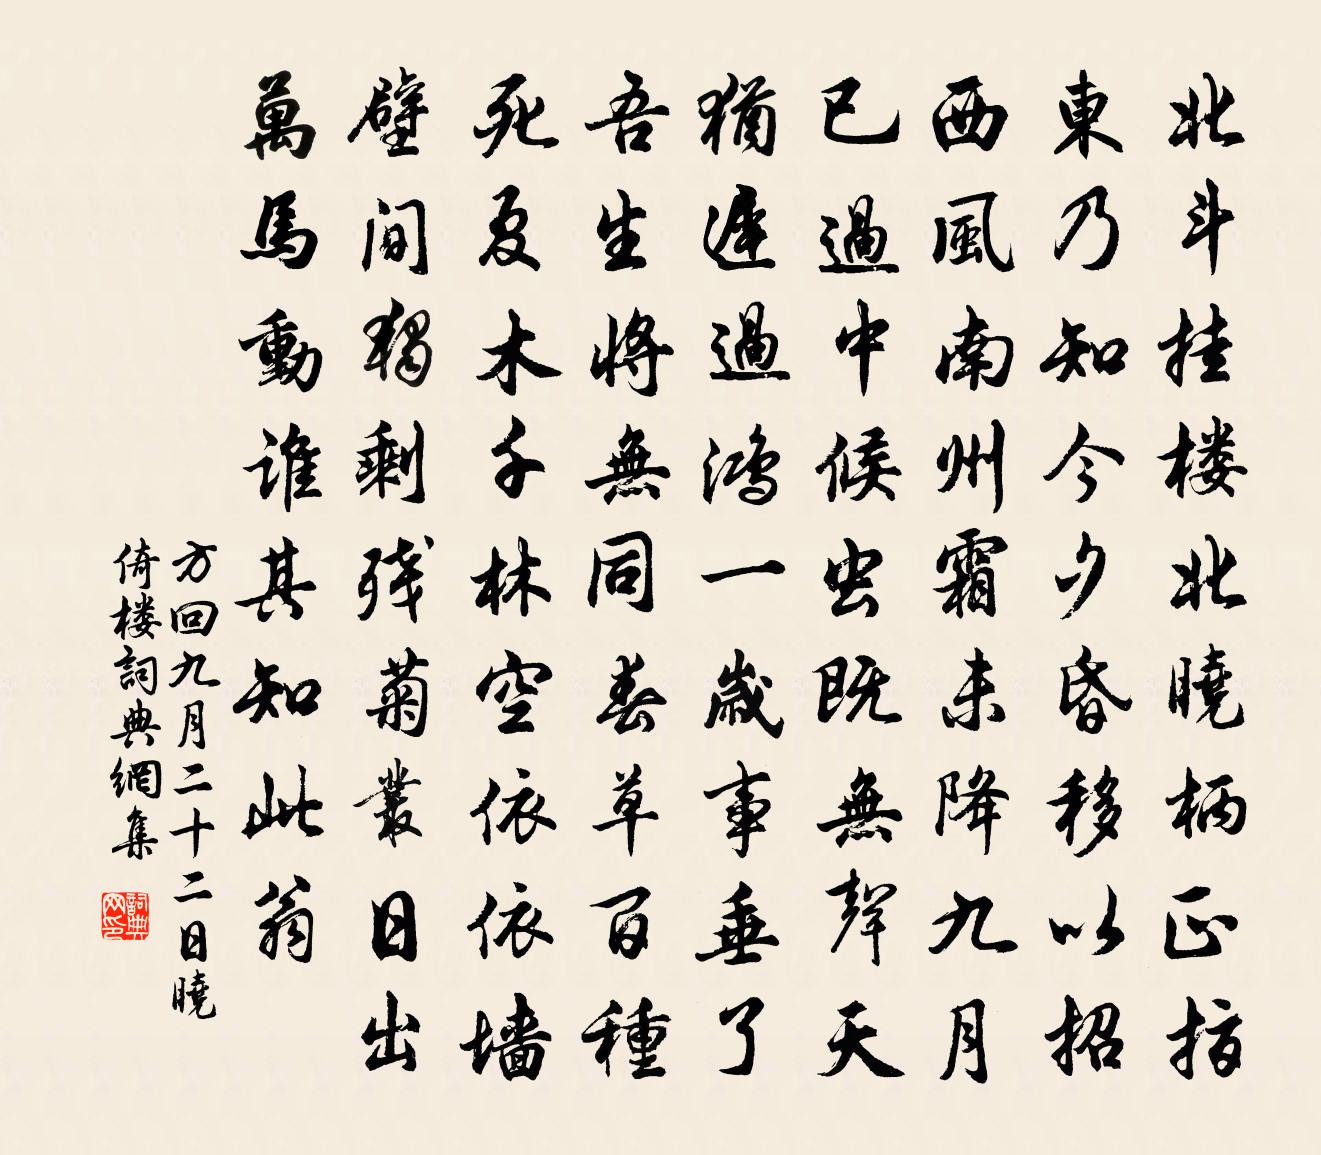 北斗挂楼北曉柄正指
東乃知今夕昏移以招
西風南州霜未降九月
已過中候虫既無聲天
猶遲過鴻一歲事垂了
吾生將無同春草百種
死夏木千林空依依墻
壁間獨剩残菊叢日出
萬馬動誰其知此翁
方回九月二十二日曉
倚楼詞典網集
詞典网印